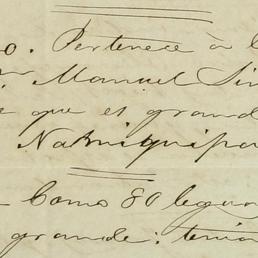 o. Pertenece à l
Manuel Sin
e que es grand
Nahuiquipa
Como 80 legua
grande; tenia